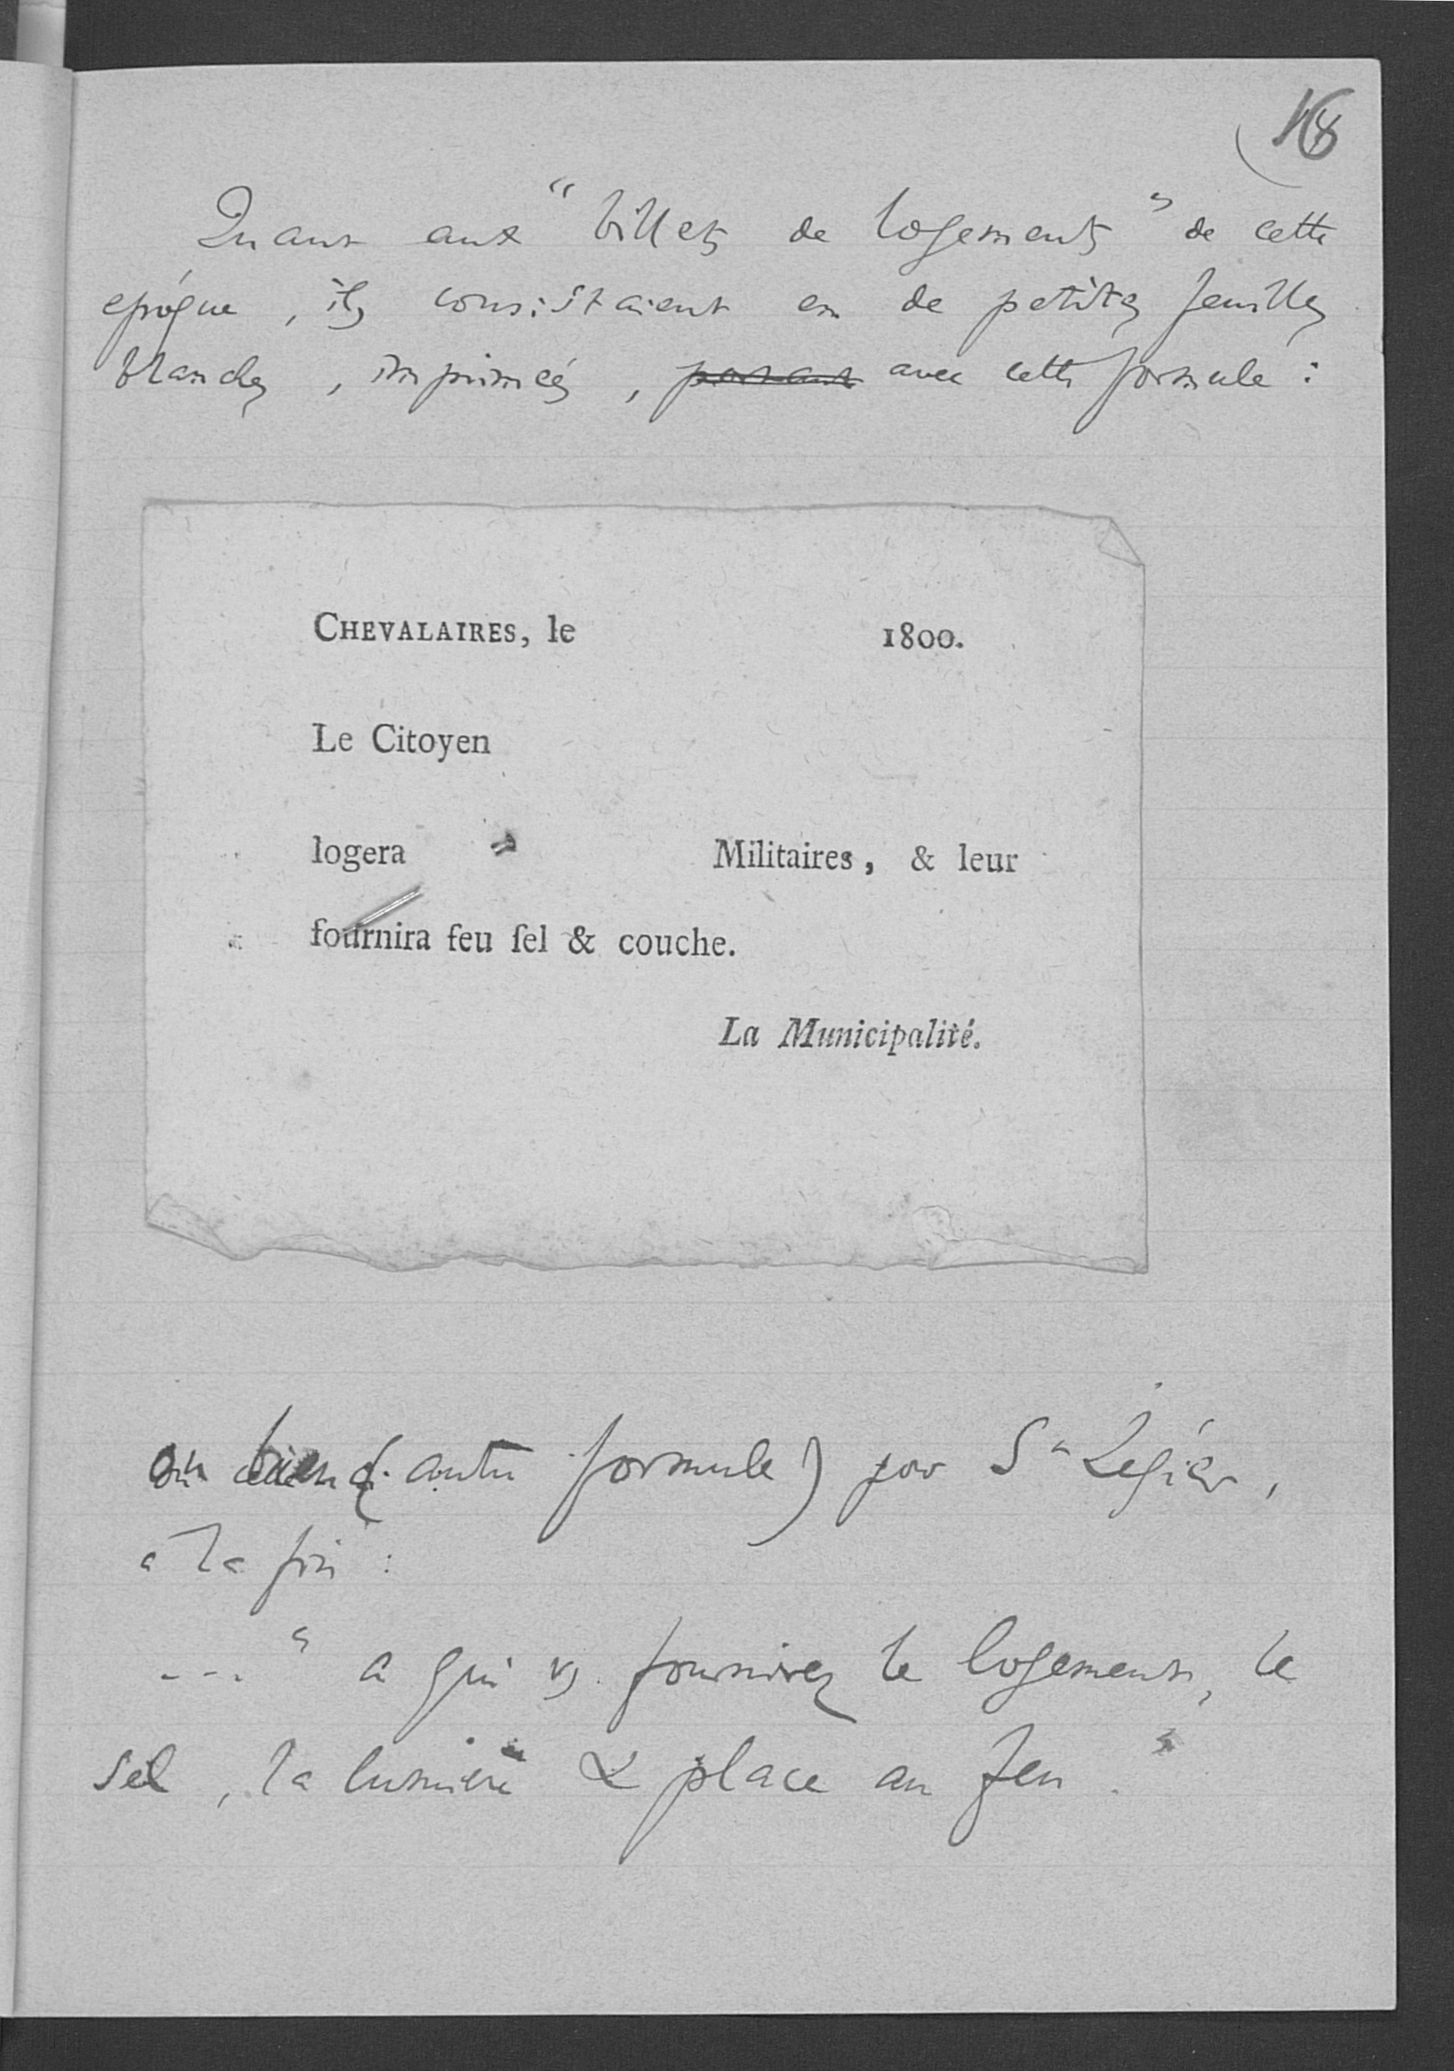 Quant aux "billets de logements" de cette
epoque, ils consistaient en de petites feuilles
blanches, imprimées, portant avec cette formule :
CHEVALAIRES, le 1800.
Le Citoyen
logera Militaires, & leur
fournira feu ſel & couche.
La Municipalité.
ou bien (autre formule) par St Légier,
a la fin :
--- "a qui vs. fournirez le logement, le
sel, la lumière & place au feu."